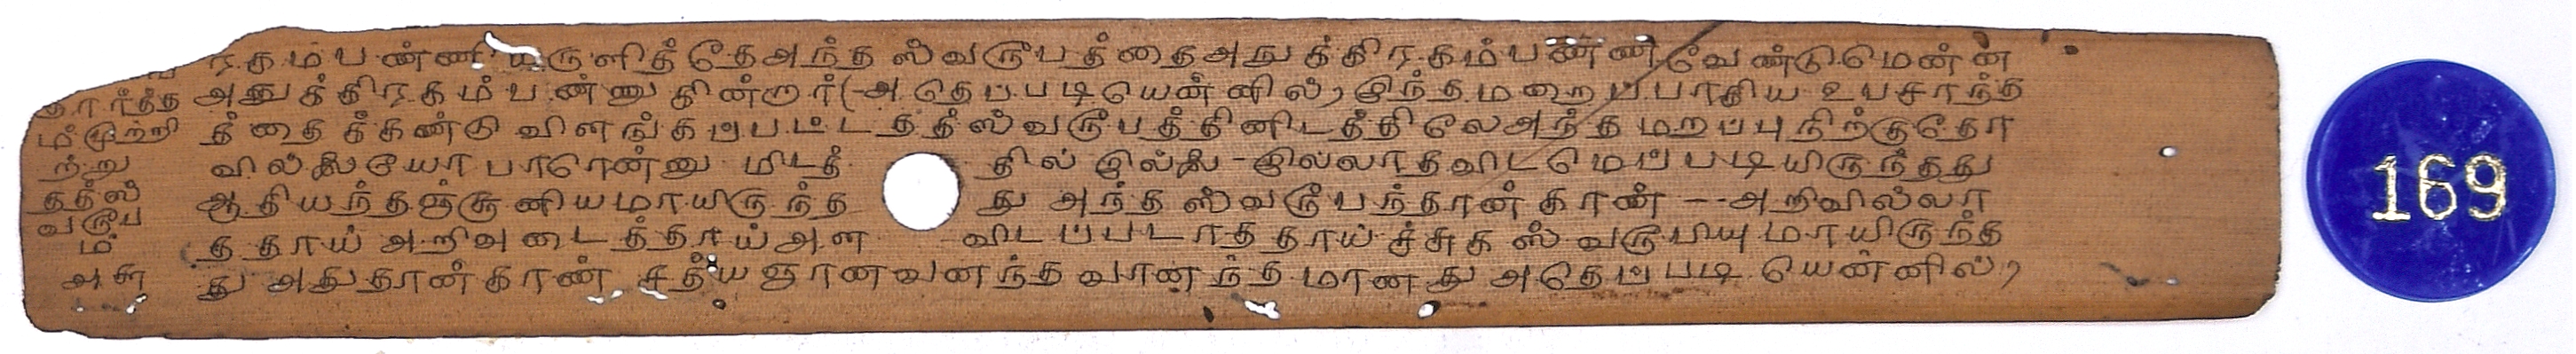 ரகம்பண்ணியருளித்தே அந்த ஸ்வரூபத்தை அநுக்கிரகம்பண்ண வேண்டுமென்ன
அநுக்கிரகம் பண்ணுகின்றார் (-அதெப்படியென்னில்) இந்த மறைப்பாகிய உபசாந்த
த்தைக்கண்டு விளங்கப்பட்ட தத்ஸ்வரூபத்தினிடத்திலே அந்த மறப்பு நிற்குதோ
வில்லையோ பாரொன்னு மிடத்தில் இல்லை - இல்லாதவிடமெப்படியிருந்தது
ஆதியந்தஞ்சூனியமாயிருந்தது அந்த ஸ்வரூபந்தான்காண் -- அறிவில்லா
ததாய் அறிவுடைத்தாய் அளவிடப்படாததாய்ச்சுகஸ்வரூபியுமாயிருந்த
து அதுதான்காண் சத்யஞானவனந்தவானந்தமானது அதெப்படி யென்னில்)
ம்முற்றி
ற்று
தத்ஸ்
வரூப
ம்
169